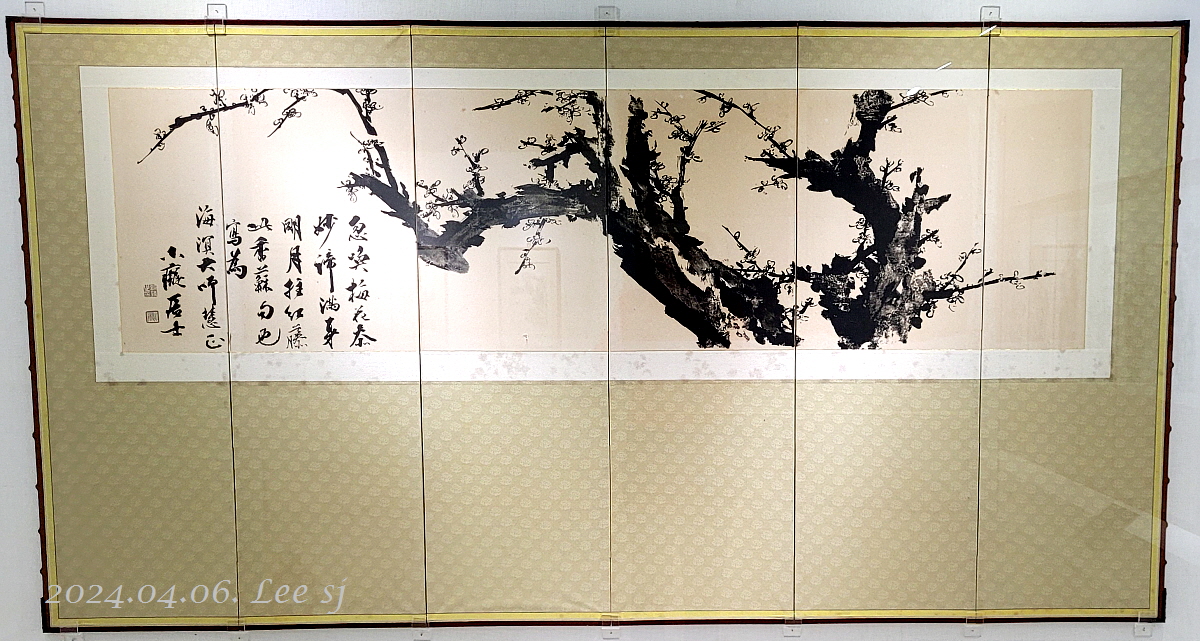 忽喚梅花叅
妙諦滿身
明月拄紅藤
此香蘇句也
寫爲
海溟大師慧正
小癡居士
2024.04.06. Lee sj